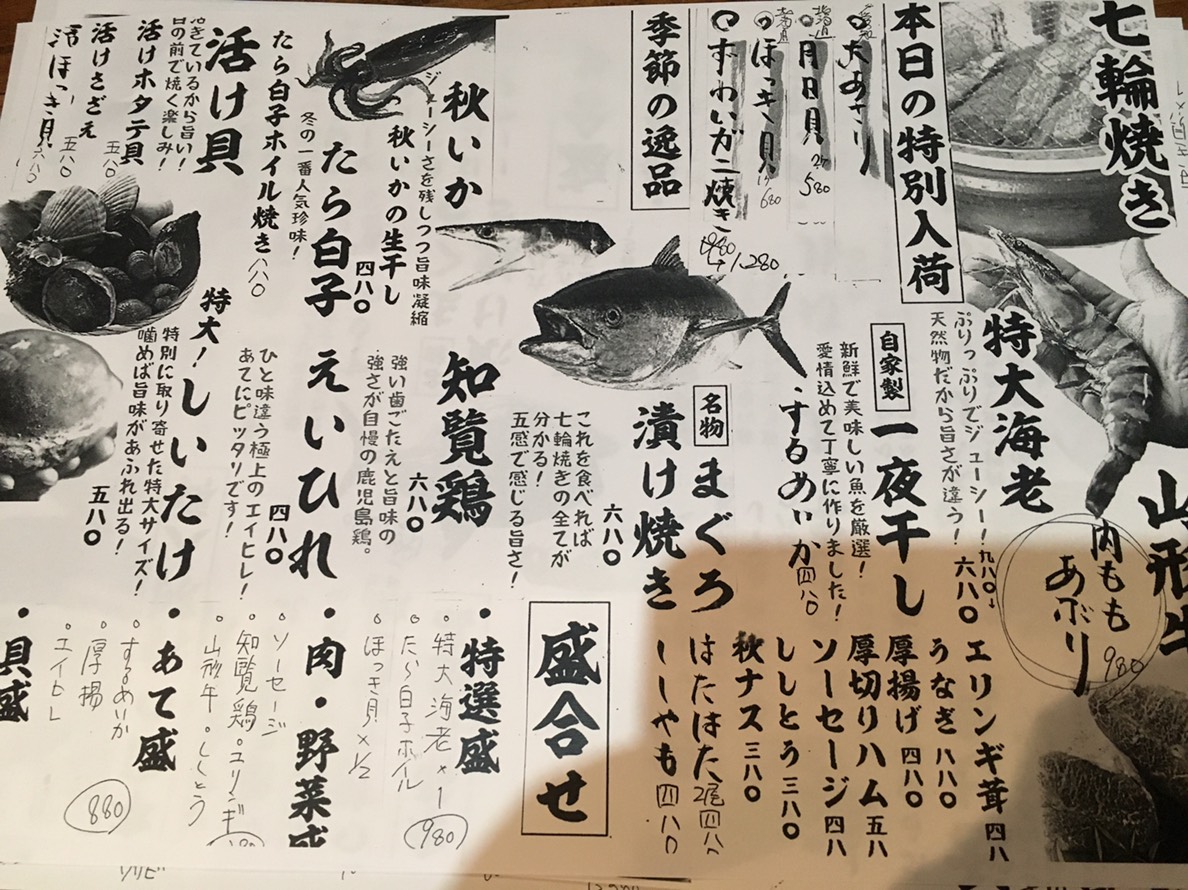 七輪焼き
本日の特別入荷
大あさり
月日貝
580
ほっき貝
680
ずわいガニ焼き
1,280
季節の逸品
特大海老
ぷりっぷりでジューシー!
天然物だから旨さが違う!
九八〇
六八〇
自家製
一夜干し
新鮮で美味しい魚を厳選!
愛情込めて丁寧に作りました!
するめいか 四八〇
名物
まぐろ
漬け焼き
六八〇
これを食べれば
七輪焼きの全てが
分かる!
五感で感じる旨さ!
秋いか
ジューシーさを残しつつ旨味凝縮
秋いかの生干し
四八〇
たら白子
冬の一番人気珍味!
たら白子ホイル焼き 八八〇
活け貝
生きているから旨い!
目の前で焼く楽しみ!
活けホタテ貝
五八〇
活けさざえ
五八〇
活ほっき貝
知覧鶏
六八〇
強い歯ごたえと旨味の
強さが自慢の鹿児島鶏。
えいひれ
四八〇
ひと味違う極上のエイヒレ!
あてにピッタリです!
特大!しいたけ
特別に取り寄せた特大サイズ!
噛めば旨味があふれ出る!
五八〇
山形牛
内もも
あぶり
980
エリンギ茸 四八
うなぎ 八八〇
厚揚げ 四八〇
厚切りハム 五八
ソーセージ 四八
ししとう 三八〇
秋ナス 三八〇
はたはた 2尾 四八〇
ししゃも 四八〇
盛合せ
・特選盛
・特大海老×1
・たら白子ホイル
・ほっき貝×1/2
980
・肉・野菜盛
・ソーセージ
・知覧鶏 ・エリンギ
・山形牛 ・ししとう
・あて盛
・するめいか
・厚揚
・エイヒレ
880
・貝盛